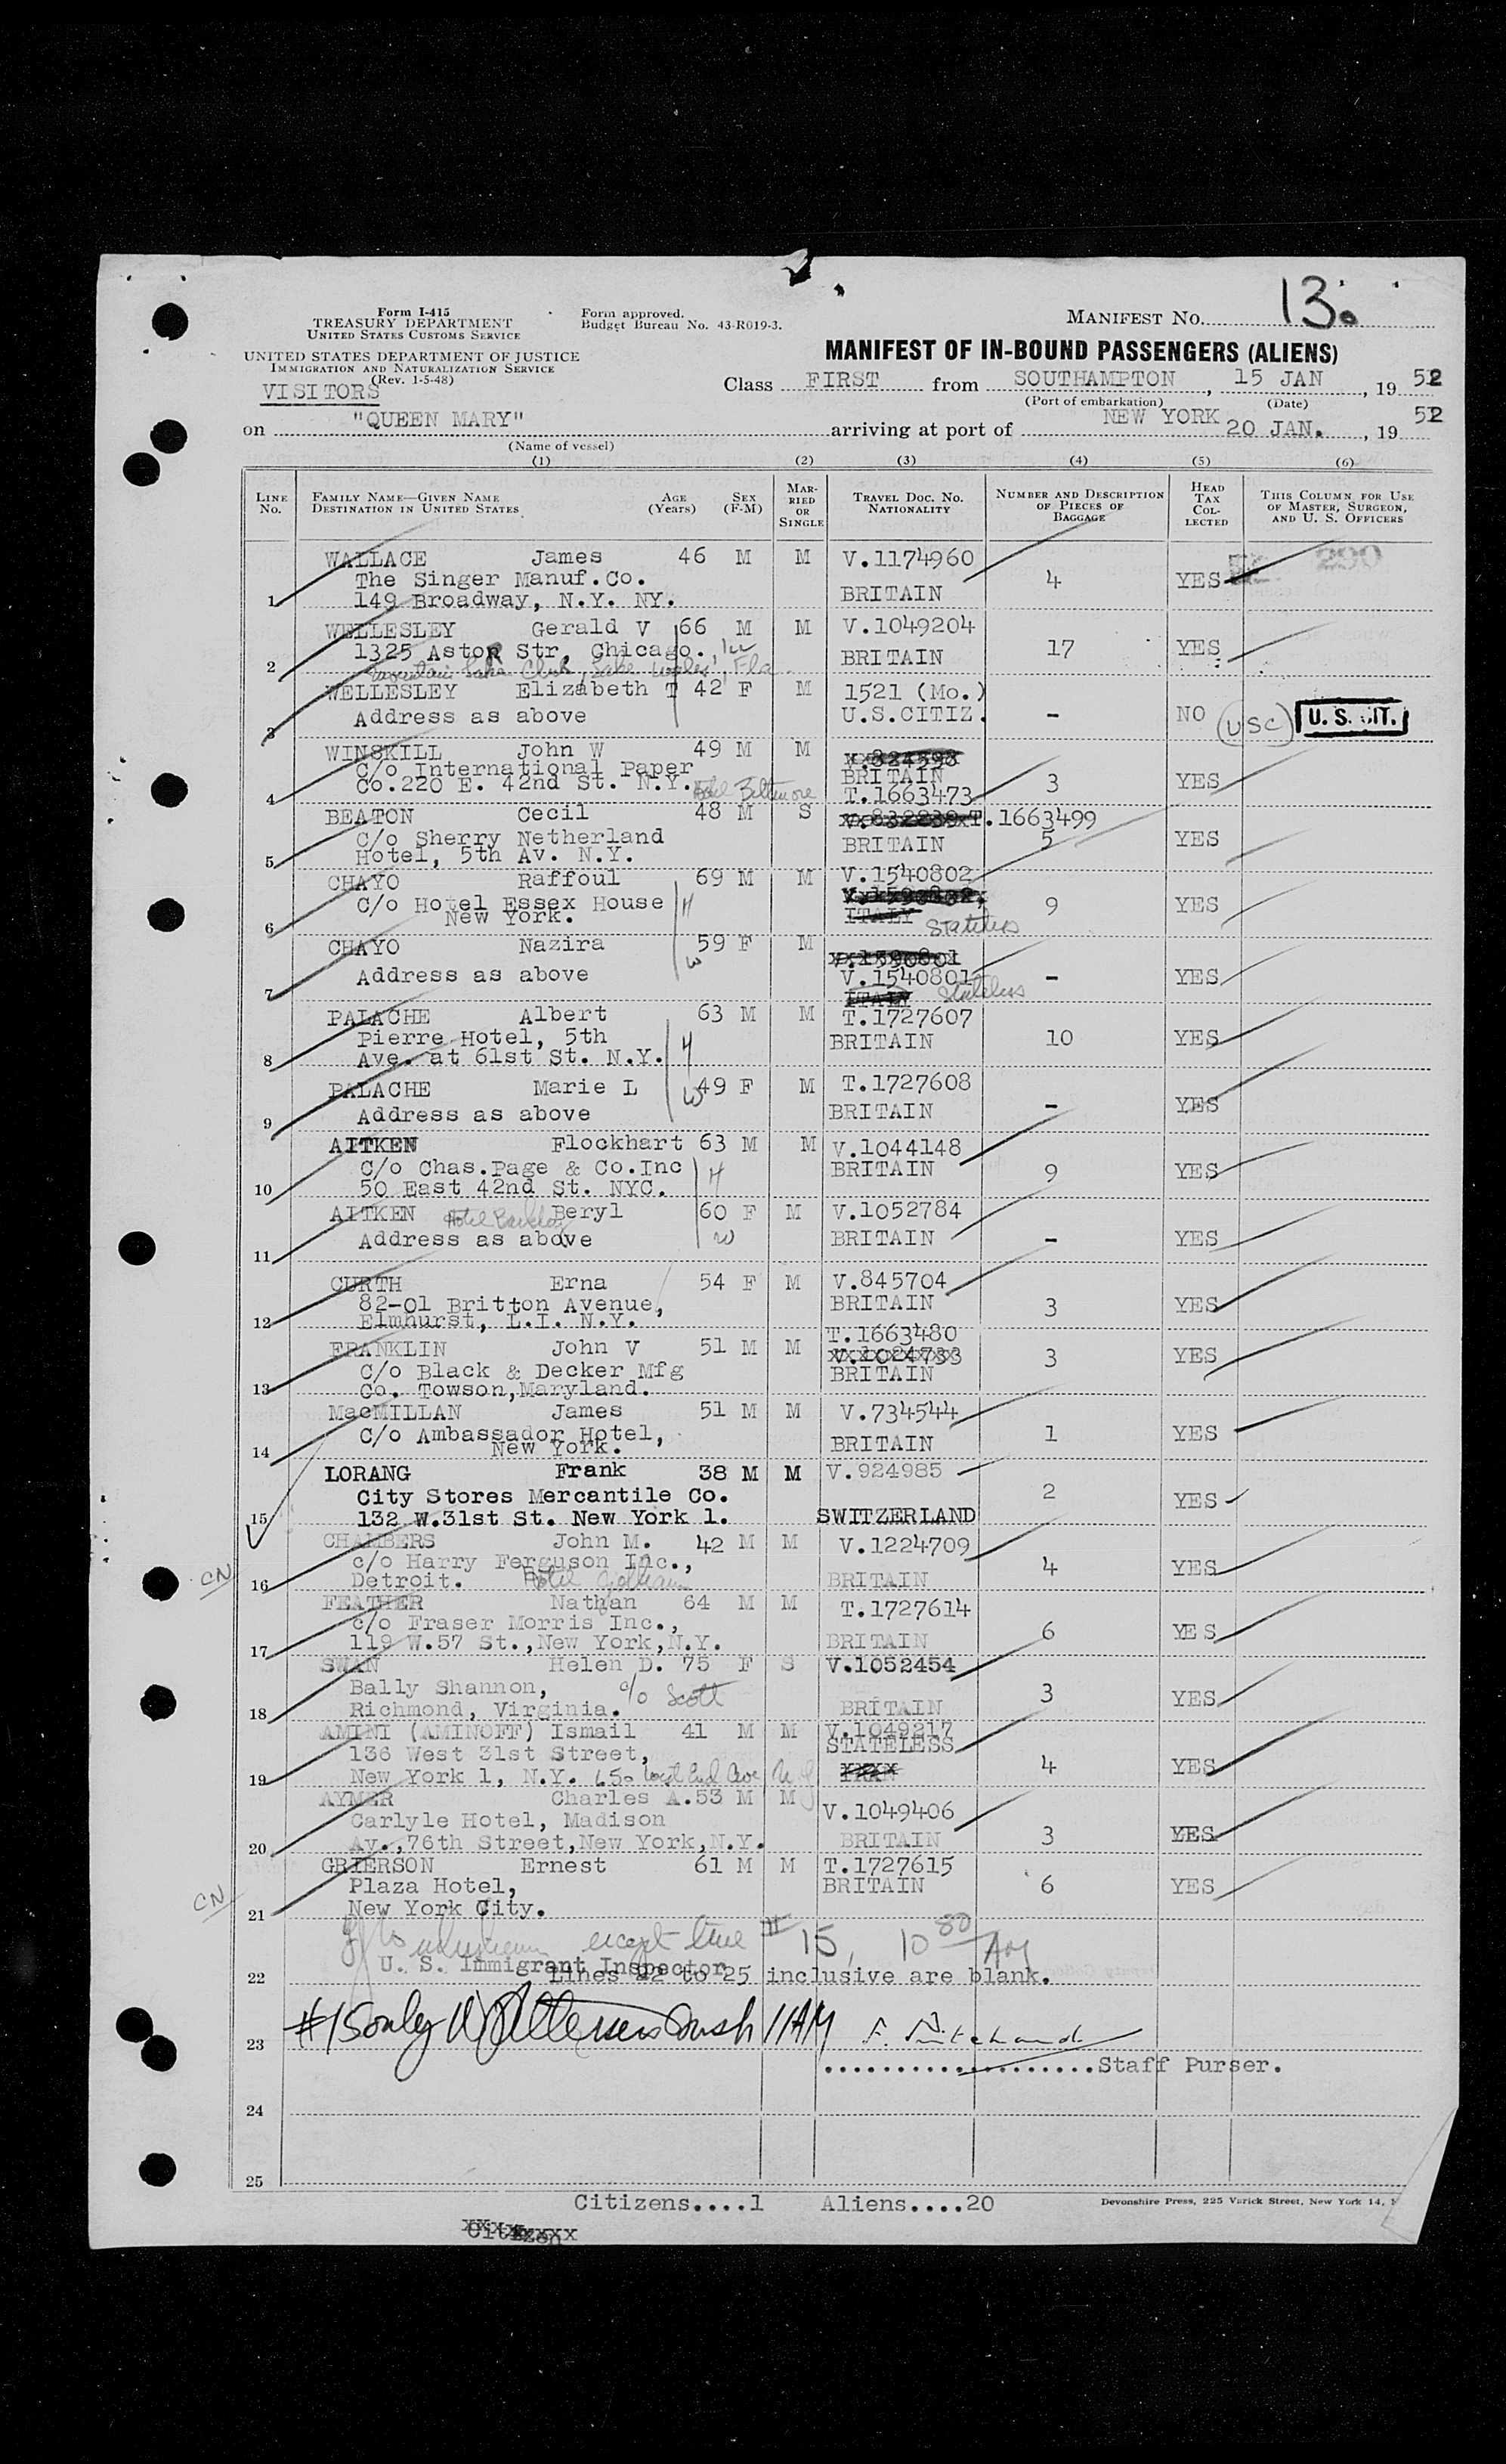 13.
Form I-415
TREASURY DEPARTMENT
UNITED STATES CUSTOMS SERVICE
Form approved.
Budget Bureau No. 43-R019-3.
MANIFEST NO.
UNITED STATES DEPARTMENT OF JUSTICE
IMMIGRATION AND NATURALIZATION SERVICE
(Rev. 1-5-48)
VISITORS
MANIFEST OF IN-BOUND PASSENGERS (ALIENS)
Class FIRST from SOUTHAMPTON, 15 JAN, 1952
(Port of embarkation) (Date)
on "QUEEN MARY" arriving at port of NEW YORK 20 JAN., 1952
(Name of vessel)
(1) (2) (3) (4) (5) (6)
LINE No. FAMILY NAME—GIVEN NAME DESTINATION IN UNITED STATES AGE (Years) SEX (F-M) MARRIED OR SINGLE TRAVEL DOC. NO. NATIONALITY NUMBER AND DESCRIPTION OF PIECES OF BAGGAGE HEAD TAX COLLECTED THIS COLUMN FOR USE OF MASTER, SURGEON, AND U. S. OFFICERS
WALLACE James 46 M M V.1174960
The Singer Manuf.Co. 4 YES 290
1 149 Broadway, N.Y. NY. BRITAIN
WELLESLEY Gerald V 66 M M V.1049204
1325 AstoR Str, Chicago. 17 YES
2 Mountain Lake Club, Lake Wales, Fla. BRITAIN
WELLESLEY Elizabeth T 42 F M 1521 (Mo.)
3 Address as above U.S.CITIZ. - NO (USC) U. S. CIT.
WINSKILL John W 49 M M V.824598
C/o International Paper BRITAIN
4 Co.220 E. 42nd St. N.Y. Hotel Biltmore T.1663473 3 YES
BEATON Cecil 48 M S V.832839 T.1663499
C/o Sherry Netherland BRITAIN 5 YES
5 Hotel, 5th Av. N.Y.
CHAYO Raffoul 69 M M V.1540802
C/o Hotel Essex House H 9 YES
6 New York. ITALY Stateless
CHAYO Nazira 59 F M
W
7 Address as above V.1540801 - YES
ITALY Stateless
PALACHE Albert 63 M M T.1727607
Pierre Hotel, 5th H BRITAIN 10 YES
8 Ave. at 61st St. N.Y.
PALACHE Marie L W 49 F M T.1727608
9 Address as above BRITAIN - YES
AITKEN Flockhart 63 M M V.1044148
C/o Chas.Page & Co.Inc H BRITAIN 9 YES
10 50 East 42nd St. NYC.
AITKEN Hotel Barclay Beryl 60 F M V.1052784
11 Address as above W BRITAIN - YES
CURTH Erna 54 F M V.845704
82-01 Britton Avenue, BRITAIN 3 YES
12 Elmhurst, L.I. N.Y.
FRANKLIN John V 51 M M T.1663480
C/o Black & Decker Mfg V.1024733 3 YES
13 Co. Towson,Maryland. BRITAIN
MacMILLAN James 51 M M V.734544
C/o Ambassador Hotel, 1 YES
14 New York. BRITAIN
LORANG Frank 38 M M V.924985
City Stores Mercantile Co. 2 YES
15 132 W.31st St. New York 1. SWITZERLAND
CHAMBERS John M. 42 M M V.1224709
c/o Harry Ferguson Inc., 4 YES
CN 16 Detroit. Hotel Gotham BRITAIN
FEATHER Nathan 64 M M T.1727614
c/o Fraser Morris Inc., 6 YES
17 119 W.57 St.,New York,N.Y. BRITAIN
SWAN Helen D. 75 F S V.1052454
Bally Shannon, c/o Scott 3 YES
18 Richmond, Virginia. BRITAIN
AMINI (AMINOFF) Ismail 41 M M V.1049217
136 West 31st Street, STATELESS 4 YES
19 New York 1, N.Y. 650 West End Ave NY IRAN
AYMER Charles A. 53 M M V.1049406
Carlyle Hotel, Madison 3 YES
20 Av.,76th Street,New York,N.Y. BRITAIN
GRIERSON Ernest 61 M M T.1727615
Plaza Hotel, BRITAIN 6 YES
CN 21 New York City.
except line # 15, 10 AM
U. S. Immigrant Inspector
22 Lines 22 to 25 inclusive are blank.
#15 only 11 AM F. Pritchard
23
Staff Purser.
24
25
Citizens....1 Aliens....20
Devonshire Press, 225 Varick Street, New York 14,
Citizen